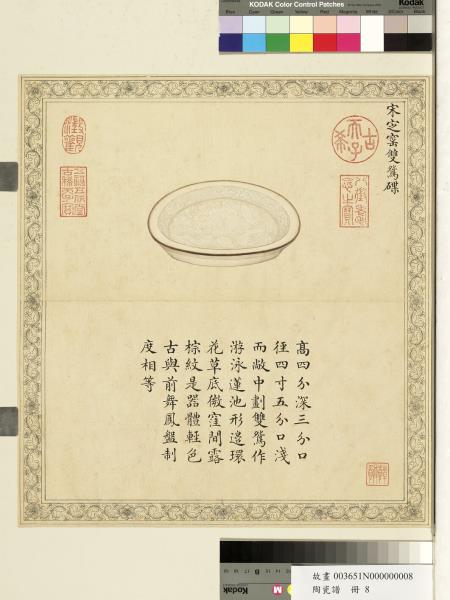 KODAK Color Control Patches
Kodak
Blue
Cyan
Green
Yellow
Red
Magenta
White
3/Color
Black
宋定窑雙鴛碟
古希天子
八徵耄念之寶
壽
高四分深三分口
徑四寸五分口淺
而敞中劃雙鴛作
游泳蓮池形邊環
花草底儌窪間露
棕紋是器體輕色
古與前舞鳳盤制
度相等
乾隆
B
M
故畫 003651N000000008
陶瓷譜 冊 8